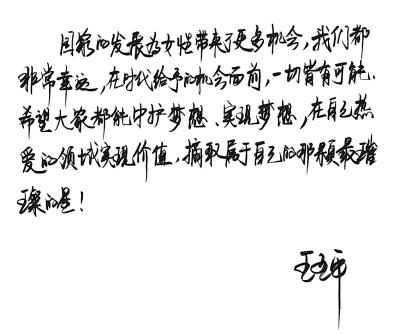 国家的发展为女性带来了更多机会，我们都
非常幸运，在时代给予的机会面前，一切皆有可能.
希望大家都能守护梦想、实现梦想，在自己热
爱的领域实现价值，摘取属于自己的那颗最璀
璨的星！
王亚平